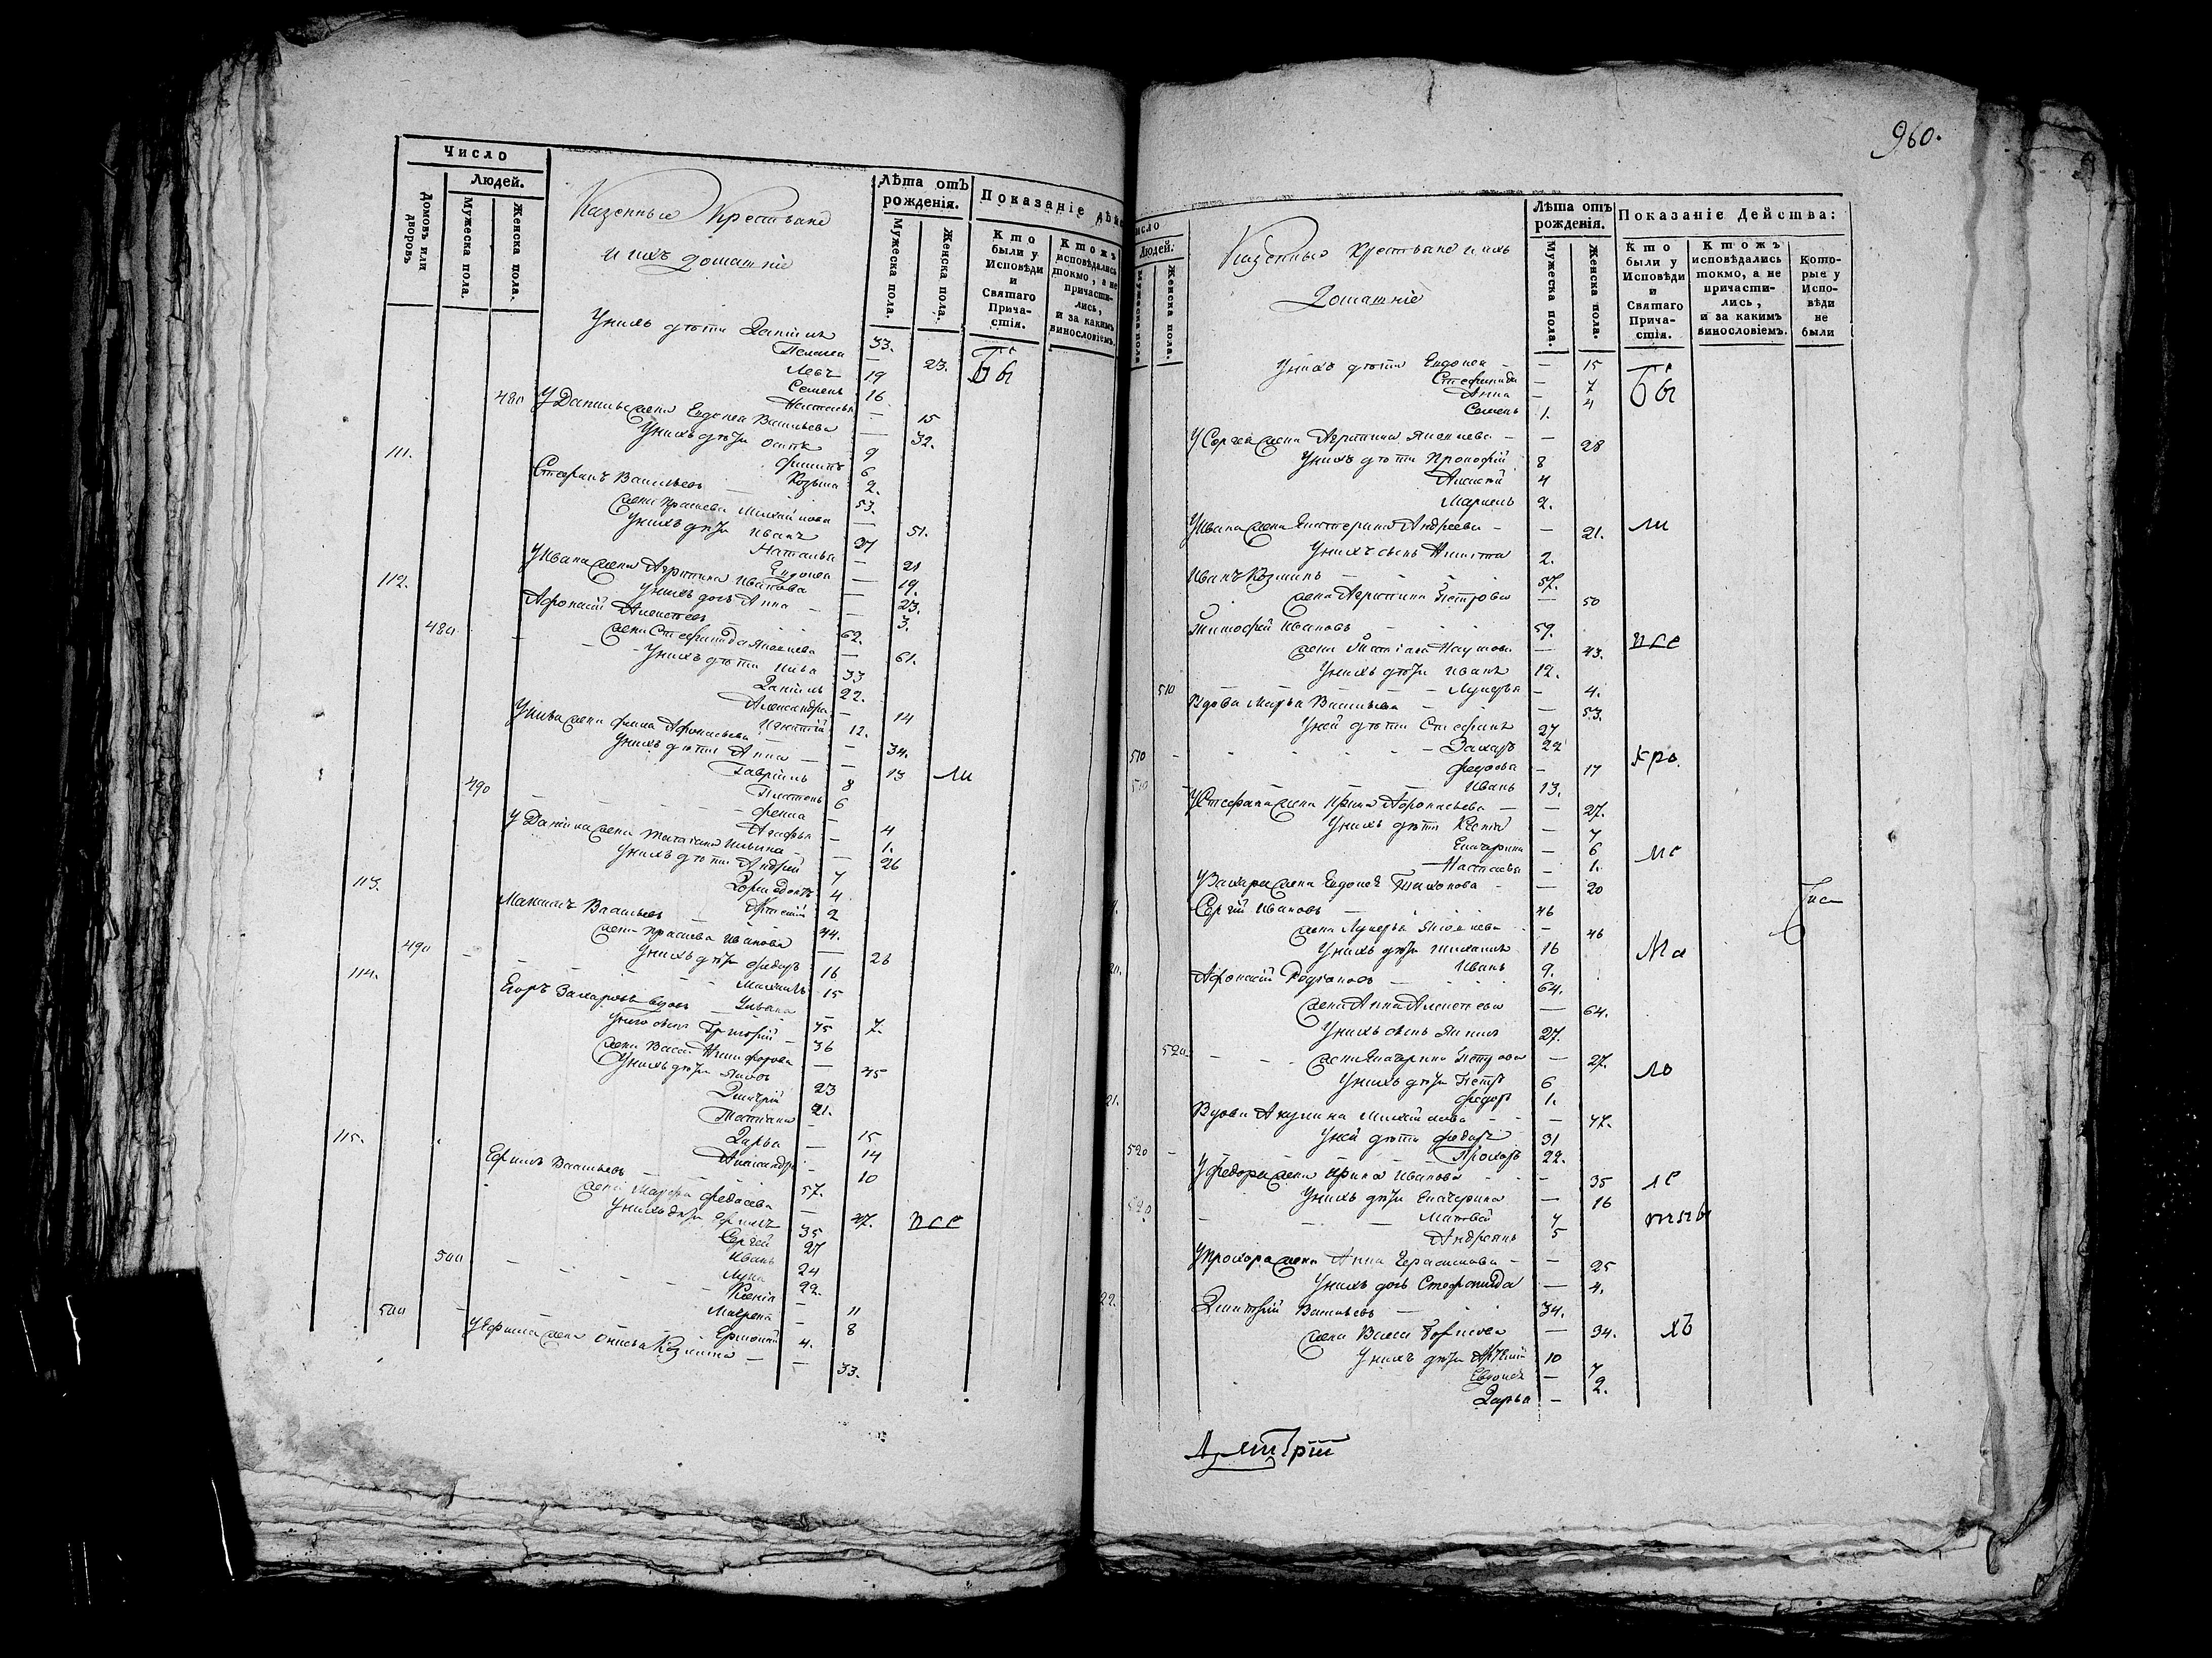 Число
Людей.
Домовъ или дворовъ
Мужеска пола.
Женска пола.
Казенные Крестьяне
и ихъ домашніе
Лѣта отъ рожденія.
Мужеска пола.
Женска пола.
Показаніе дѣй
Кто были у Исповѣди и Святаго Причастія.
Ктожъ исповѣдались токмо, а не причастились, и за какимъ винословіемъ.
У нихъ дѣти Даніилъ 33.
Пелагея — 23. Бы
Левъ 19
Семенъ 16
Наталья — 15
480 У Данилы жена Евдокея Васильева — 32.
У нихъ дѣти Осипъ 9
Филипъ 6
Козьма 2.
111. Стефанъ Васильевъ — 53.
жена Прасковья Михайлова — 51.
У нихъ дѣти Иванъ 31
Наталья — 21
Евдокея — 19.
У Ивана жена Агрипина Иванова — 23.
У нихъ дочь Анна — 3.
112. Афонасій Алексеевъ 62.
480 жена Стефанида Яковлева — 61.
У нихъ дѣти Илья 33
Даніилъ 22.
Александра — 14
Игнатій 12.
У Ильи жена Фекла Афонасьева — 34.
У нихъ дѣти Анна — 13 ли
Гавріилъ 8
490 Платонъ 6
Фекла — 4
Агафья — 1.
У Даніила жена Татіана Ильина — 26
У нихъ дѣти Андрей 7
4
2
113. Максимъ Васильевъ — 44.
жена Прасковья Иванова — 26
490 У нихъ дѣти Федоръ 16
Михаилъ 15
Ульяна — 7.
114. Егоръ Захаровъ вдовъ 75
У него сынъ Григорій 36
жена Васса Никифорова — 45
У нихъ дѣти Яковъ 23
Дмитрій 21.
Татіана — 15
Дарья — 14
Александра — 10
115. Ефимъ Васильевъ 57.
жена Марфа Федосеева — 47. псе
У нихъ дѣти Ефимъ 35
Сергей 27
Иванъ 24
500 Лука 22.
Ксенія — 11
Маврена — 8
500 Ермолай 4.
У Ефима жена Онисья Козмина — 33.
960.
исло
Людей.
Мужеска пола
Женска пола.
Казенные крестьяне и ихъ
домашніе
Лѣта отъ рожденія.
Мужеска пола.
Женска пола.
Показаніе Действа:
Кто были у Исповѣди и Святаго Причастія.
Ктожъ исповѣдались токмо, а не причастились, и за какимъ винословіемъ.
Которые у Исповѣди не были
У нихъ дѣти Евдокея — 15
Стефанида — 7 Бы
Анна — 4
Семенъ 1.
У Сергея жена Агрипина Яковлева — 28
У нихъ дѣти Прокофій 8
Алексѣй 4
2.
У Ивана жена Екатерина Андреева — 21. ли
У нихъ сынъ Никита 2.
Иванъ Козминъ 57.
жена Агрипина Петрова — 50
Тимофей Ивановъ 59.
жена Татіана Наумова — 43. псе
У нихъ дѣти Иванъ 12.
510 Лукерья — 4.
Вдова Марья Васильева — 53.
У ней дѣти Стефанъ 27
510 Захаръ 22 кро.
Федосья — 17
510 Иванъ 13.
У Стефана жена Ирина Афонасьева — 27.
У нихъ дѣти Ксенія — 7
Екатерина — 6 ме
Настасья — 1.
У Захара жена Евдокея Тихонова — 20
Сергей Ивановъ 46
жена Лукерья Яковлева — 46
У нихъ дѣти Михаилъ 16 Ма
Иванъ 9.
20. Афонасій Родіоновъ 64.
жена Анна Алексеева — 64.
У нихъ сынъ Якимъ 27.
520 жена Екатерина Петрова — 27. ло
У нихъ дѣти Петръ 6
Федоръ 1.
21. Вдова Акулина Михайлова — 47.
У ней дѣти Федоръ 31
520 Прохоръ 22.
У Федора жена Ирина Иванова — 35 ле
У нихъ дѣти Екатерина — 16
520 Матвей 7
Андреянъ 5
У Прохора жена Анна Герасимова — 25
У нихъ дочь Стефанида — 4.
22. Дмитрій Васильевъ 34.
жена Васса — 34. хъ
У нихъ дѣти Артемій 10
Евдокея — 7
Дарья — 2.